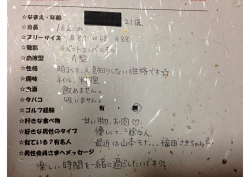 ☆なまえ・年齢 21歳
☆身長 162cm
☆スリーサイズ B87 W58 H88
☆職業
☆血液型 A型
☆性格 明るくて、人見知りしない性格です☆
☆趣味 ネイル、料理
☆お酒 飲めません。
☆タバコ 吸いません。
☆ゴルフ経験 有 無
☆好きな食べ物 甘い物、お肉♡
☆好きな男性のタイプ 優しくて一途な人
☆似ている？有名人 最近は山本モナ、、、福田さきちゃん!
☆男性会員さまへメッセージ
楽しい時間を一緒に過ごしたいです☆